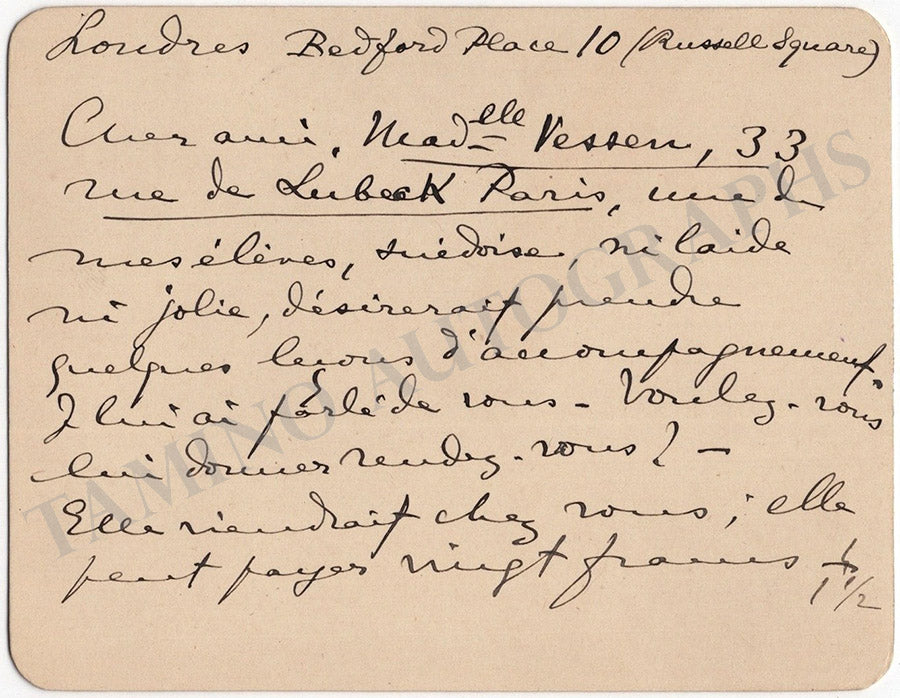 Londres Bedford Place 10 (Russell Square)
Cher ami, Mad<sup>elle</sup> Vessen, 33
rue de Lubeck Paris, une de
mes élèves, suédoise, ni laide
ni jolie, désirerait prendre
quelques leçons d'accompagnement.
Je lui ai parlé de vous - Voulez-vous
lui donner rendez-vous? -
Elle viendrait chez vous; elle
peut payer vingt francs
1 1/2
TAMINO AUTOGRAPHS